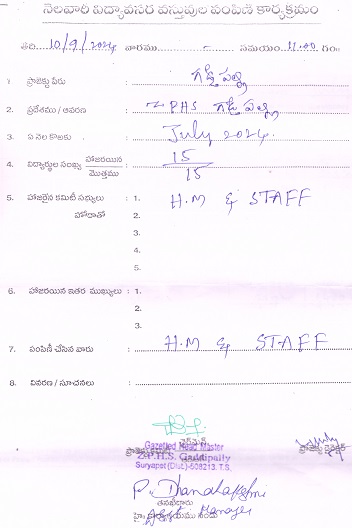 నెలవారీ విద్యావసర వస్తువుల పంపిణీ కార్యక్రమం
తేది....10/9/2024 వారము.........-......... సమయం..11.00 గం॥
1 ప్రాజెక్టు పేరు : గడ్డిపల్లి
2. ప్రదేశము / ఆవరణ : ZPHS గడ్డిపల్లి
3. ఏ నెల కొఱకు : July 2024.
4. విద్యార్థుల సంఖ్య హాజరయిన : 15
మొత్తము 15
5. హాజరైన కమిటీ సభ్యులు : 1. H.M & STAFF
హోదాతో 2.
3.
4.
5.
6. హాజరయిన ఇతర ముఖ్యులు : 1.
2.
3.
7. పంపిణీ చేసిన వారు : H.M & STAFF
8. వివరణ / సూచనలు :
Gazetted Head Master
Z.P.H.S. Gaddipally
Suryapet (Dist.)-508213. T.S.
P. Dhanalakshmi
Manager